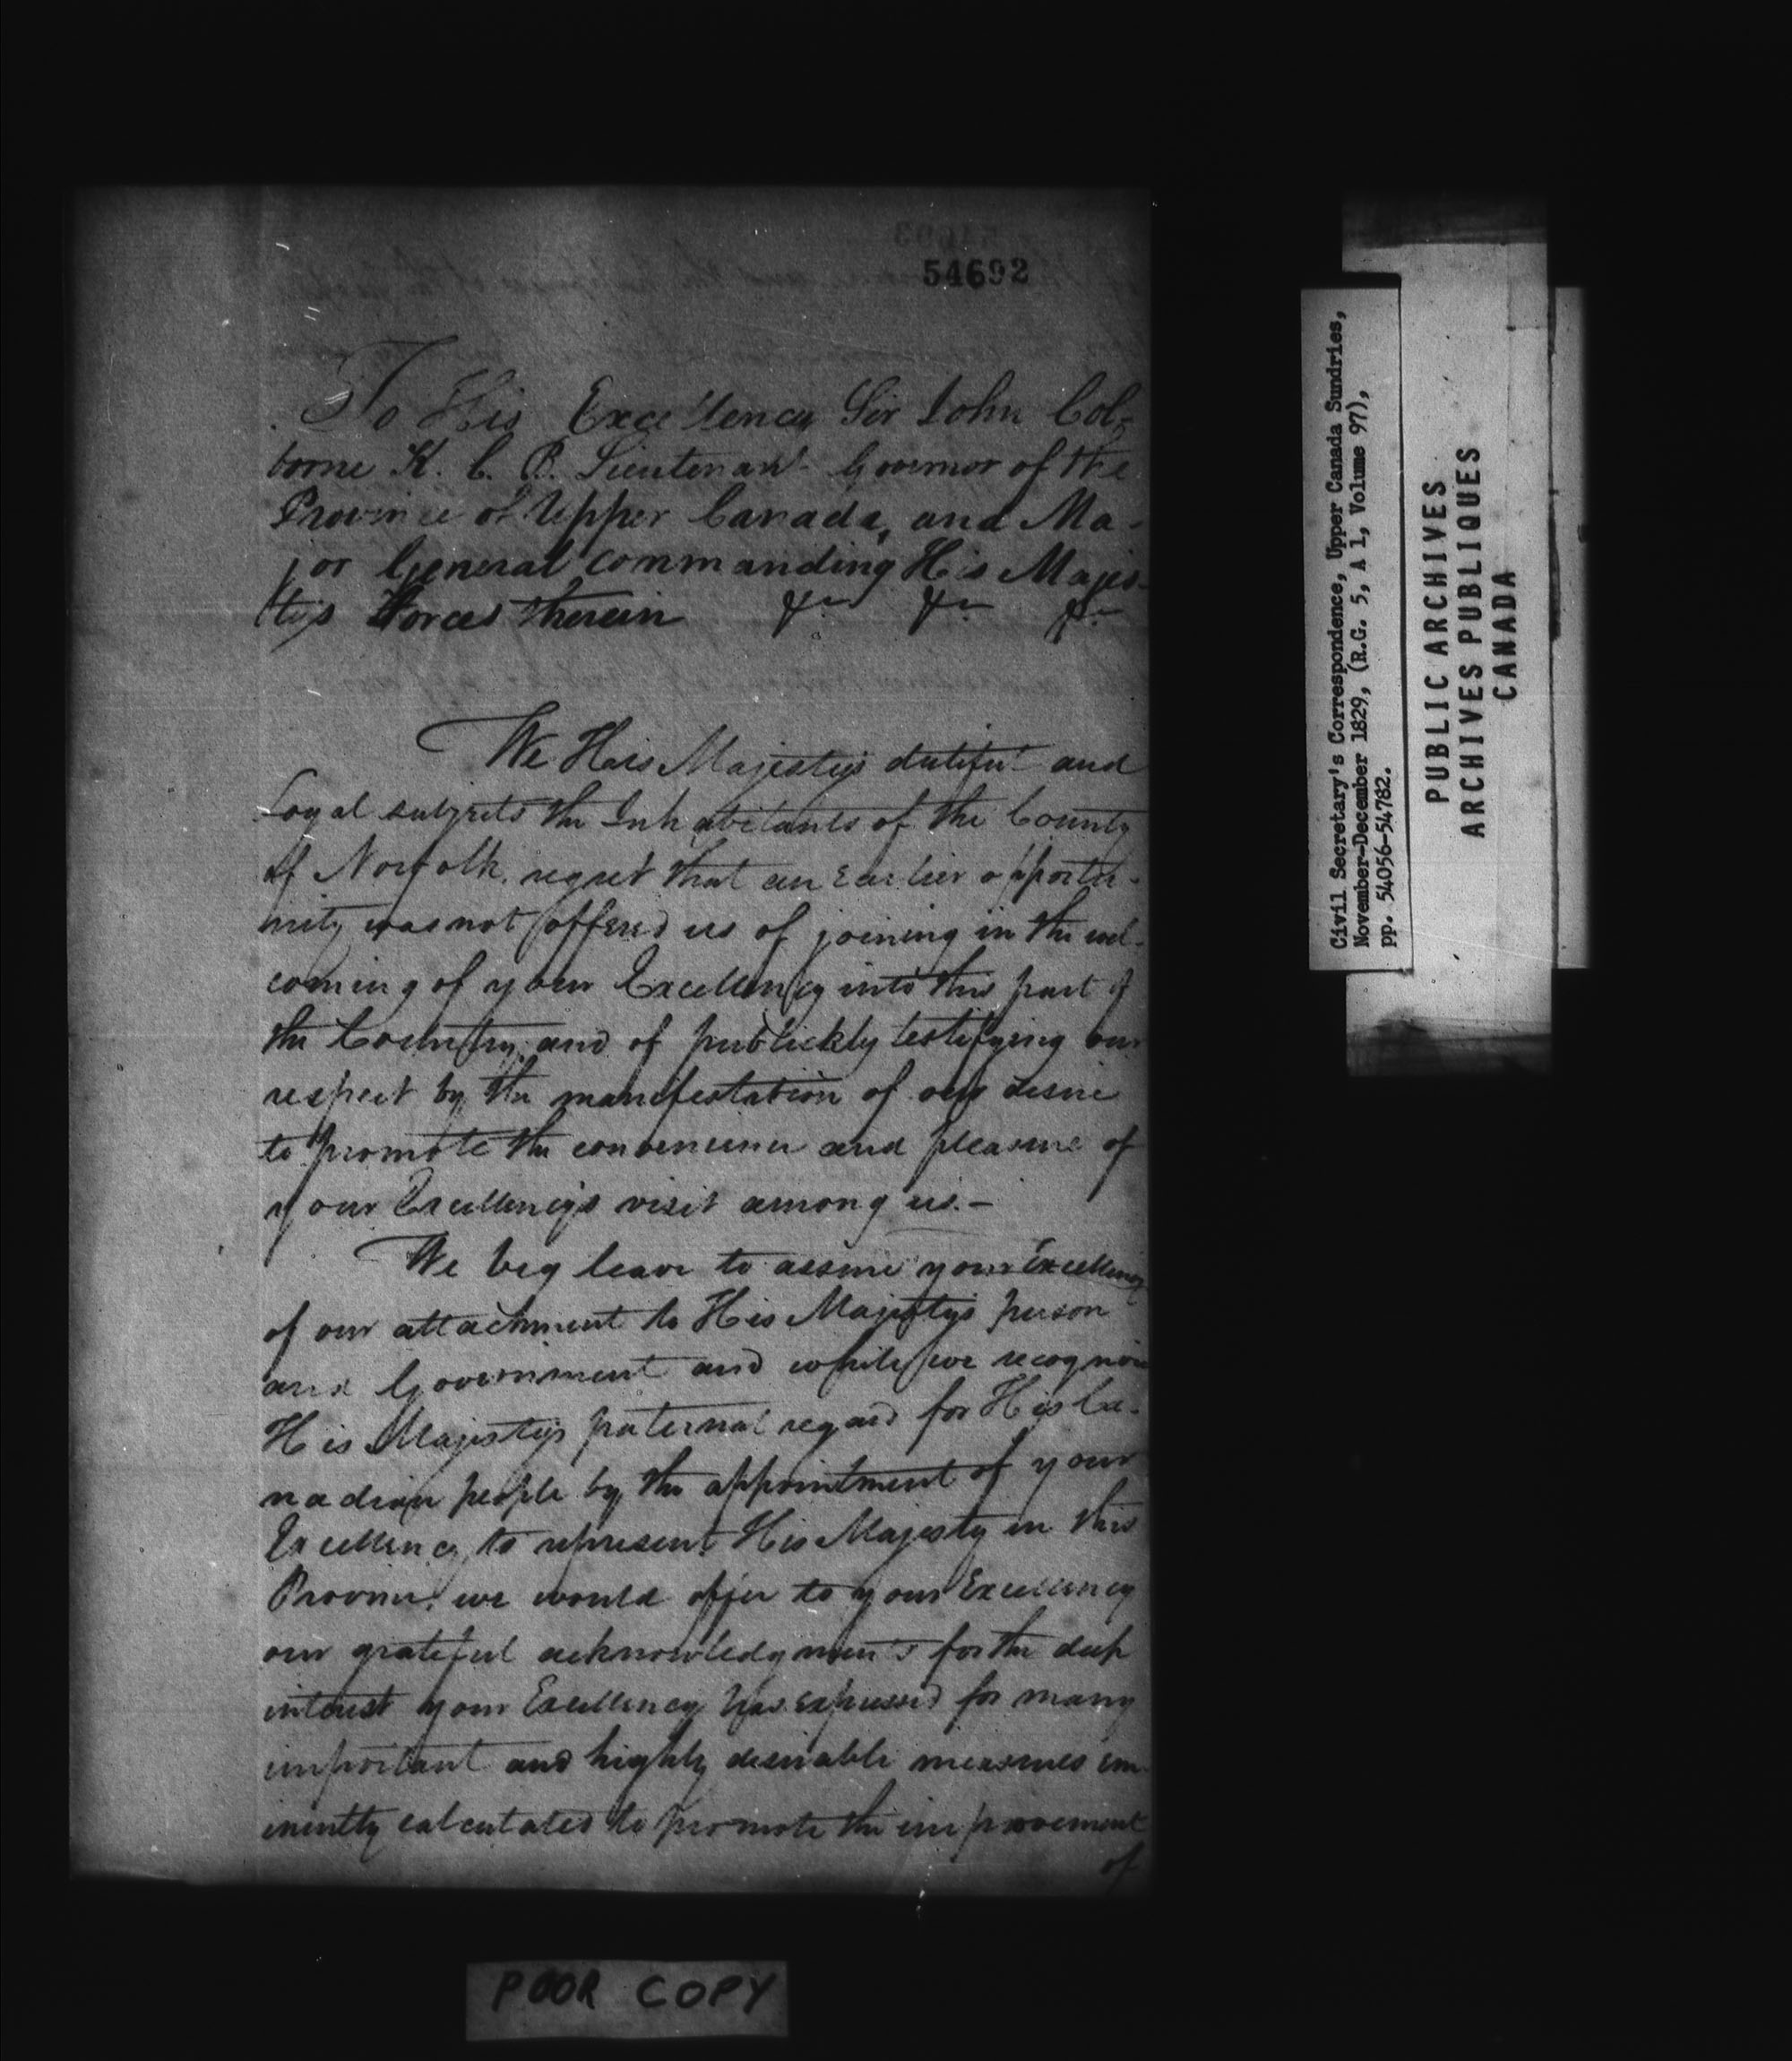 54692
To His Excellency Sir John Col-
borne K. C. B. Lieutenant Governor of the
Province of Upper Canada, and Ma-
jor General commanding His Majes-
tys Forces therein &c &c &c
We His Majestys dutiful and
Loyal subjects the Inhabitants of the County
of Norfolk, regret that an Earlier opportu-
nity was not offered us of joining in the wel-
coming of your Excellency into this part of
the Country, and of publickly testifying our
respect by the manifestation of our desire
to promote the convenience and pleasure of
your Excellencys visit among us.-
We beg leave to assure your Excellency
of our attachment to His Majestys person
and Government and while we recognise
His Majestys paternal regard for His Ca-
nadian people by the appointment of your
Excellency to represent His Majesty in this
Province, we would offer to your Excellency
our grateful acknowledgments for the deep
interest your Excellency has expressed for many
important and highly desirable measures em-
inently calculated to promote the improvement
of
POOR COPY
Civil Secretary's Correspondence, Upper Canada Sundries,
November-December 1829, (R.G. 5, A 1, Volume 97),
pp. 54056-54782.
PUBLIC ARCHIVES
ARCHIVES PUBLIQUES
CANADA